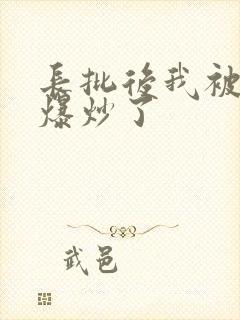 長批後我被
爆炒了
武邑